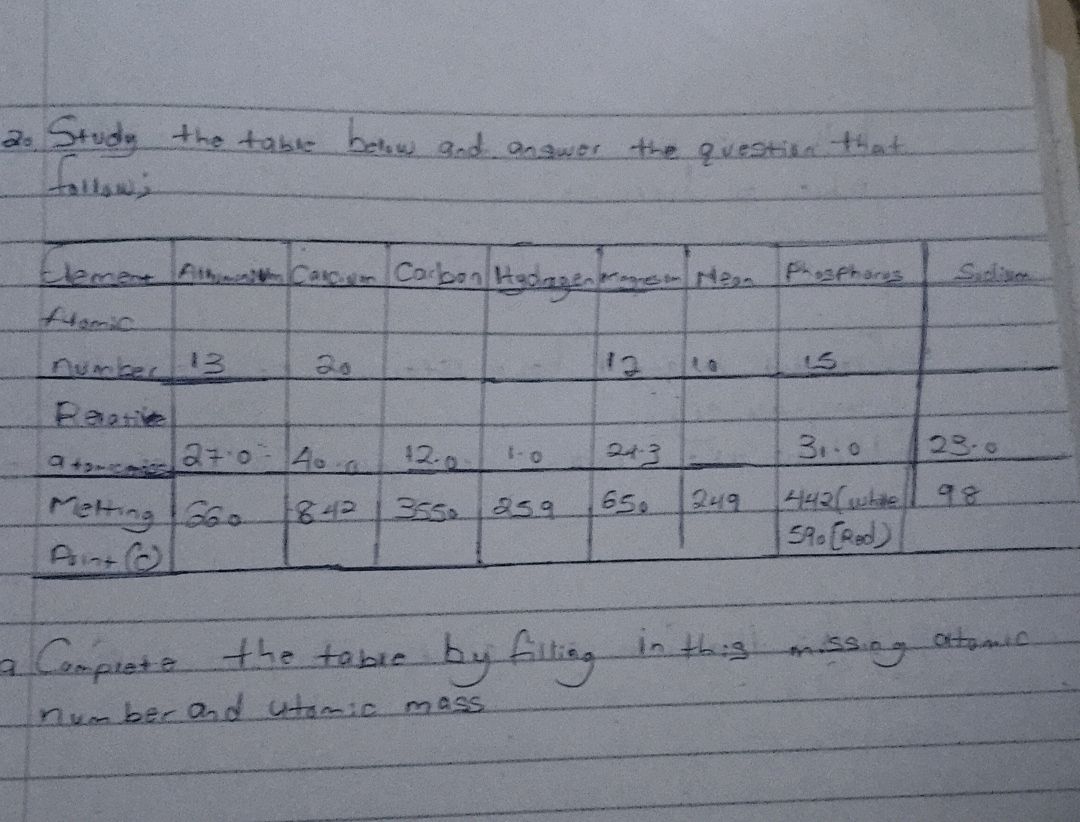 2. Study the table below and answer the question that
follow;
Element Aluminium Calcium Carbon Hydrogen Neon Phosphorus Sodium
Atomic
number 13 20 12 10 15
Relative
27.0 40.0 12.0 1.0 24.3 31.0 23.0
Melting 660 842 3550 259 650 249 442 (white) 98
Point (C) 590 (Red)
a Complete the table by filling in this missing atomic
number and atomic mass